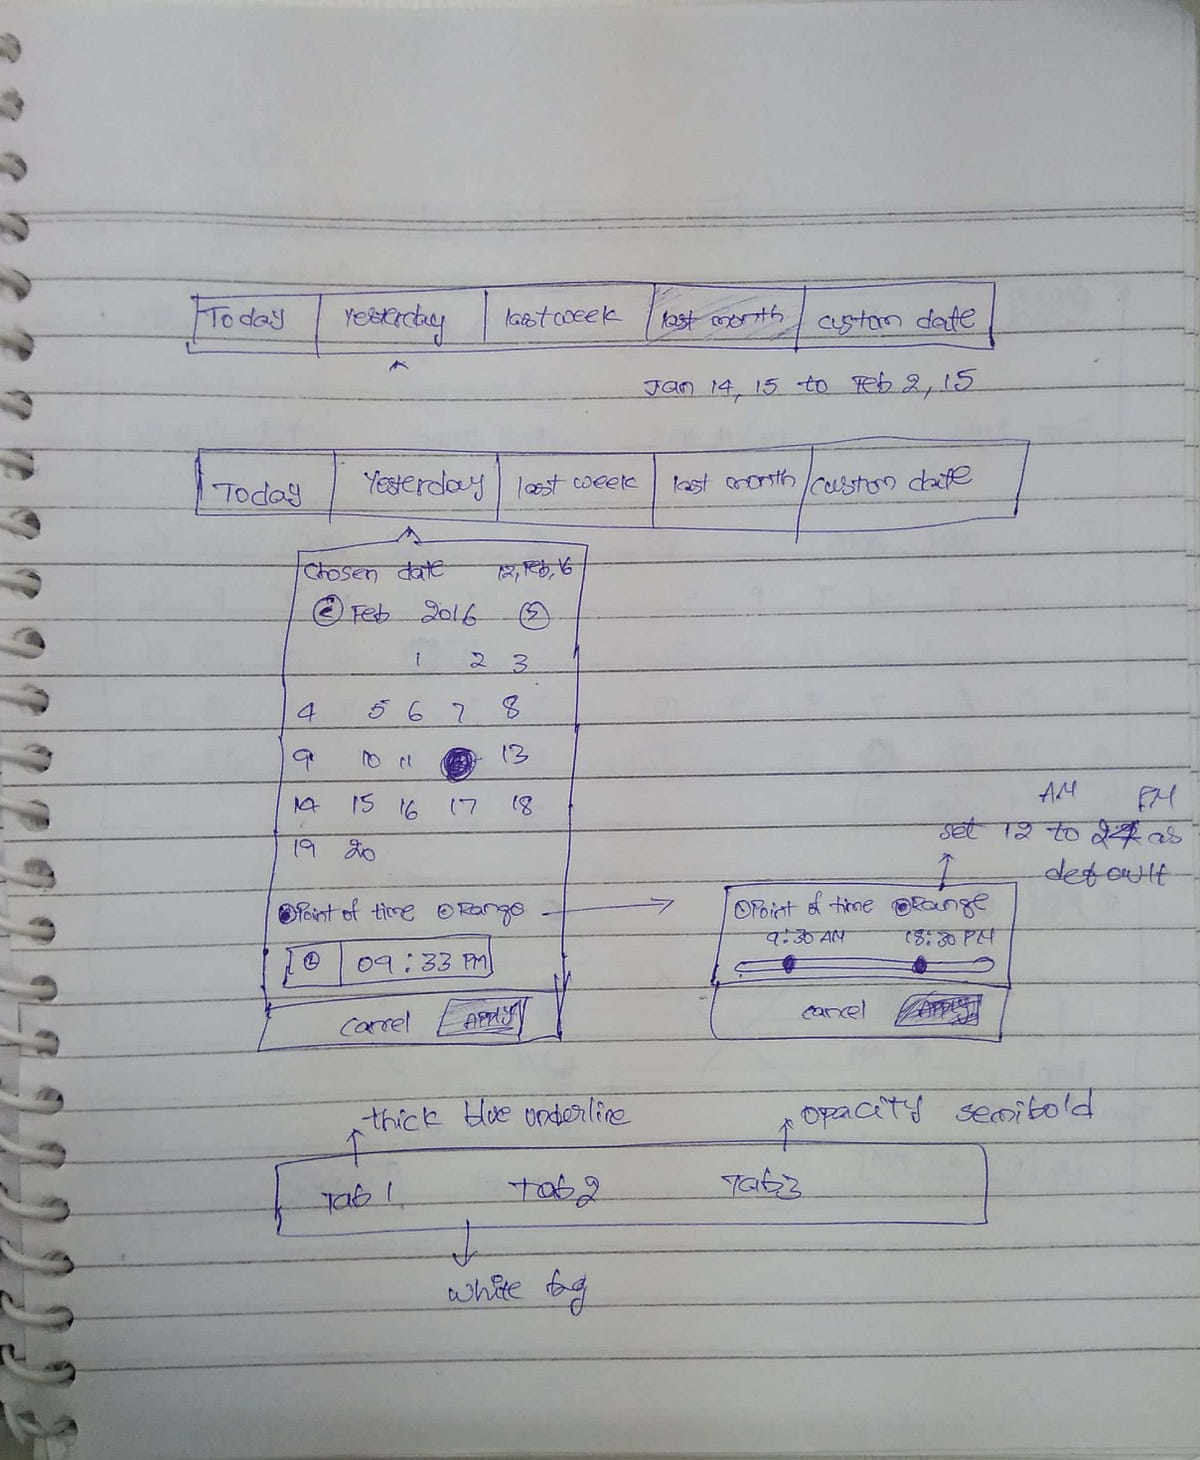 Today Yesterday last week last month custom date
Jan 14, 15 to Feb 2, 15
Today Yesterday last week last month custom date
Chosen date 12, Feb, 16
Feb 2016
1 2 3
4 5 6 7 8
9 10 11 13
14 15 16 17 18
19 20
Point of time Range
09:33 PM
Cancel APPLY
AM PM
set 12 to as
default
Point of time Range
9:30 AM 18:30 PM
Cancel APPLY
thick blue underline
opacity semibold
Tab 1 Tab 2 Tab 3
white bg